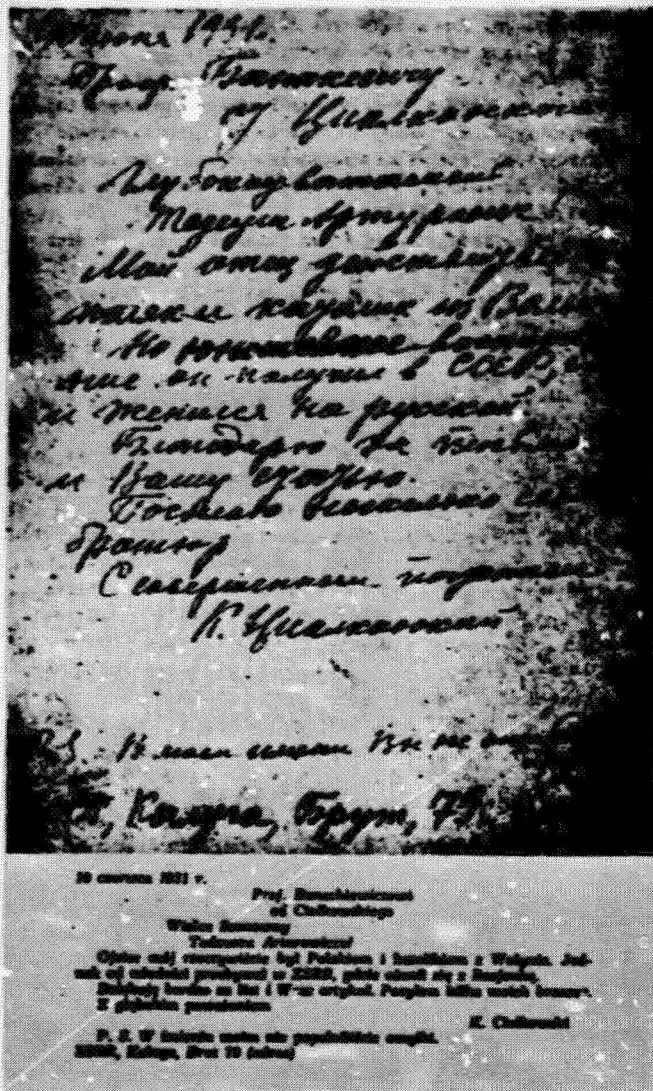 июня 1931г.
Проф. Банахевичу
от Циолковского
Глубокоуважаемый
Тадеуш Артурович
Мой отец действи
поляк и
Но
ние он получил в СССР,
и женился на русской
Благодарю за
и Вашу статью.
Посылаю несколько
брошюр
С совершенным
К. Циолковский
В моем имени Вы не
Калуга, Брут, 79
10 czerwca 1931 r.
Prof. Banachiewiczowi
od Ciołkowskiego
Wielce Szanowny
Tadeuszu Arturowiczu!
Ojciec mój rzeczywiście był Polakiem i z Wołynia. Jed-
nak od młodości przebywał w ZSRR, gdzie ożenił się z Rosjanką.
Dziękuję bardzo za list i W-sz artykuł. Posyłam kilka moich broszur.
Z głębokim poważaniem
K. Ciołkowski
P. S. W imieniu moim nie popełniliście omyłki.
ZSRR, Kaługa, Brut 79 (adres)